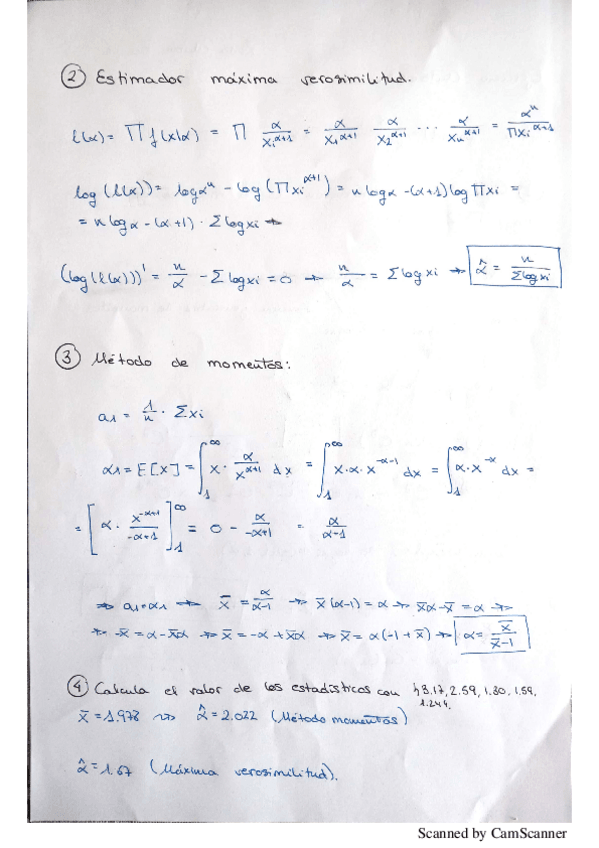 ② Estimador máxima verosimilitud.
l(α) = ∏ f(x|α) = ∏ α/xi^(α+1) = α/x1^(α+1) α/x2^(α+1) ... α/xn^(α+1) = α^n/∏xi^(α+1)
log(l(α)) = log α^n - log(∏xi^(α+1)) = n log α - (α+1) log ∏xi =
= n log α - (α+1) · Σ log xi →
(log(l(α)))' = n/α - Σ log xi = 0 → n/α = Σ log xi → α̂ = n/Σ log xi
③ Método de momentos:
a1 = 1/n · Σxi
α1 = E[x] = ∫_1^∞ x · α/x^(α+1) dx = ∫_1^∞ x·α·x^(-α-1) dx = ∫_1^∞ α·x^(-α) dx =
= [α · x^(-α+1)/(-α+1)]_1^∞ = 0 - α/(-α+1) = α/(α-1)
→ a1=α1 → x̄ = α/(α-1) → x̄(α-1) = α → x̄α-x̄ = α →
→ -x̄ = α-x̄α → x̄ = -α+x̄α → x̄ = α(-1+x̄) → α = x̄/(x̄-1)
④ Calcula el valor de los estadísticos con 3.17, 2.59, 1.30, 1.59,
1.244.
x̄ = 1.978 → α̂ = 2.022 (Método momentos)
α̂ = 1.67 (Máxima verosimilitud).
Scanned by CamScanner